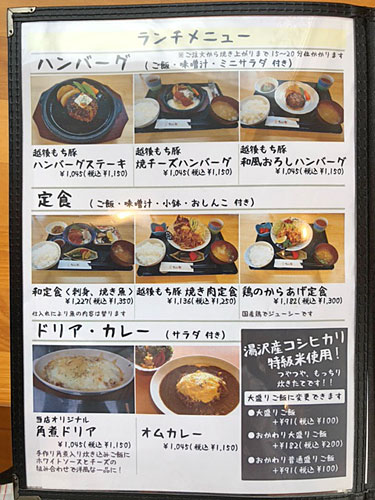 ランチメニュー
※ご注文から焼き上がりまで15~20分位かかります
ハンバーグ (ご飯・味噌汁・ミニサラダ 付き)
越後もち豚
ハンバーグステーキ
¥1,045(税込 ¥1,150)
越後もち豚
焼チーズハンバーグ
¥1,045(税込 ¥1,150)
越後もち豚
和風おろしハンバーグ
¥1,045(税込 ¥1,150)
定食 (ご飯・味噌汁・小鉢・おしんこ 付き)
和定食(刺身、焼き魚)
¥1,227(税込 ¥1,350)
仕入れにより魚の内容は替ります
越後もち豚 焼き肉定食
¥1,136(税込 ¥1,250)
鶏のからあげ定食
¥1,182(税込 ¥1,300)
国産鶏でジューシーです
ドリア・カレー (サラダ 付き)
当店オリジナル
角煮ドリア
¥1,045(税込 ¥1,150)
手作り角煮入り炊き込みご飯に
ホワイトソースとチーズの
組み合わせで洋風な一品に!
オムカレー
¥1,045(税込 ¥1,150)
湯沢産コシヒカリ
特級米使用!
つやつや、もっちり
炊きたてです!!
大盛りご飯に変更できます
●大盛りご飯
+¥91(税込 ¥100)
●おかわり大盛りご飯
+¥182(税込 ¥200)
●おかわり普通盛りご飯
+¥91(税込 ¥100)